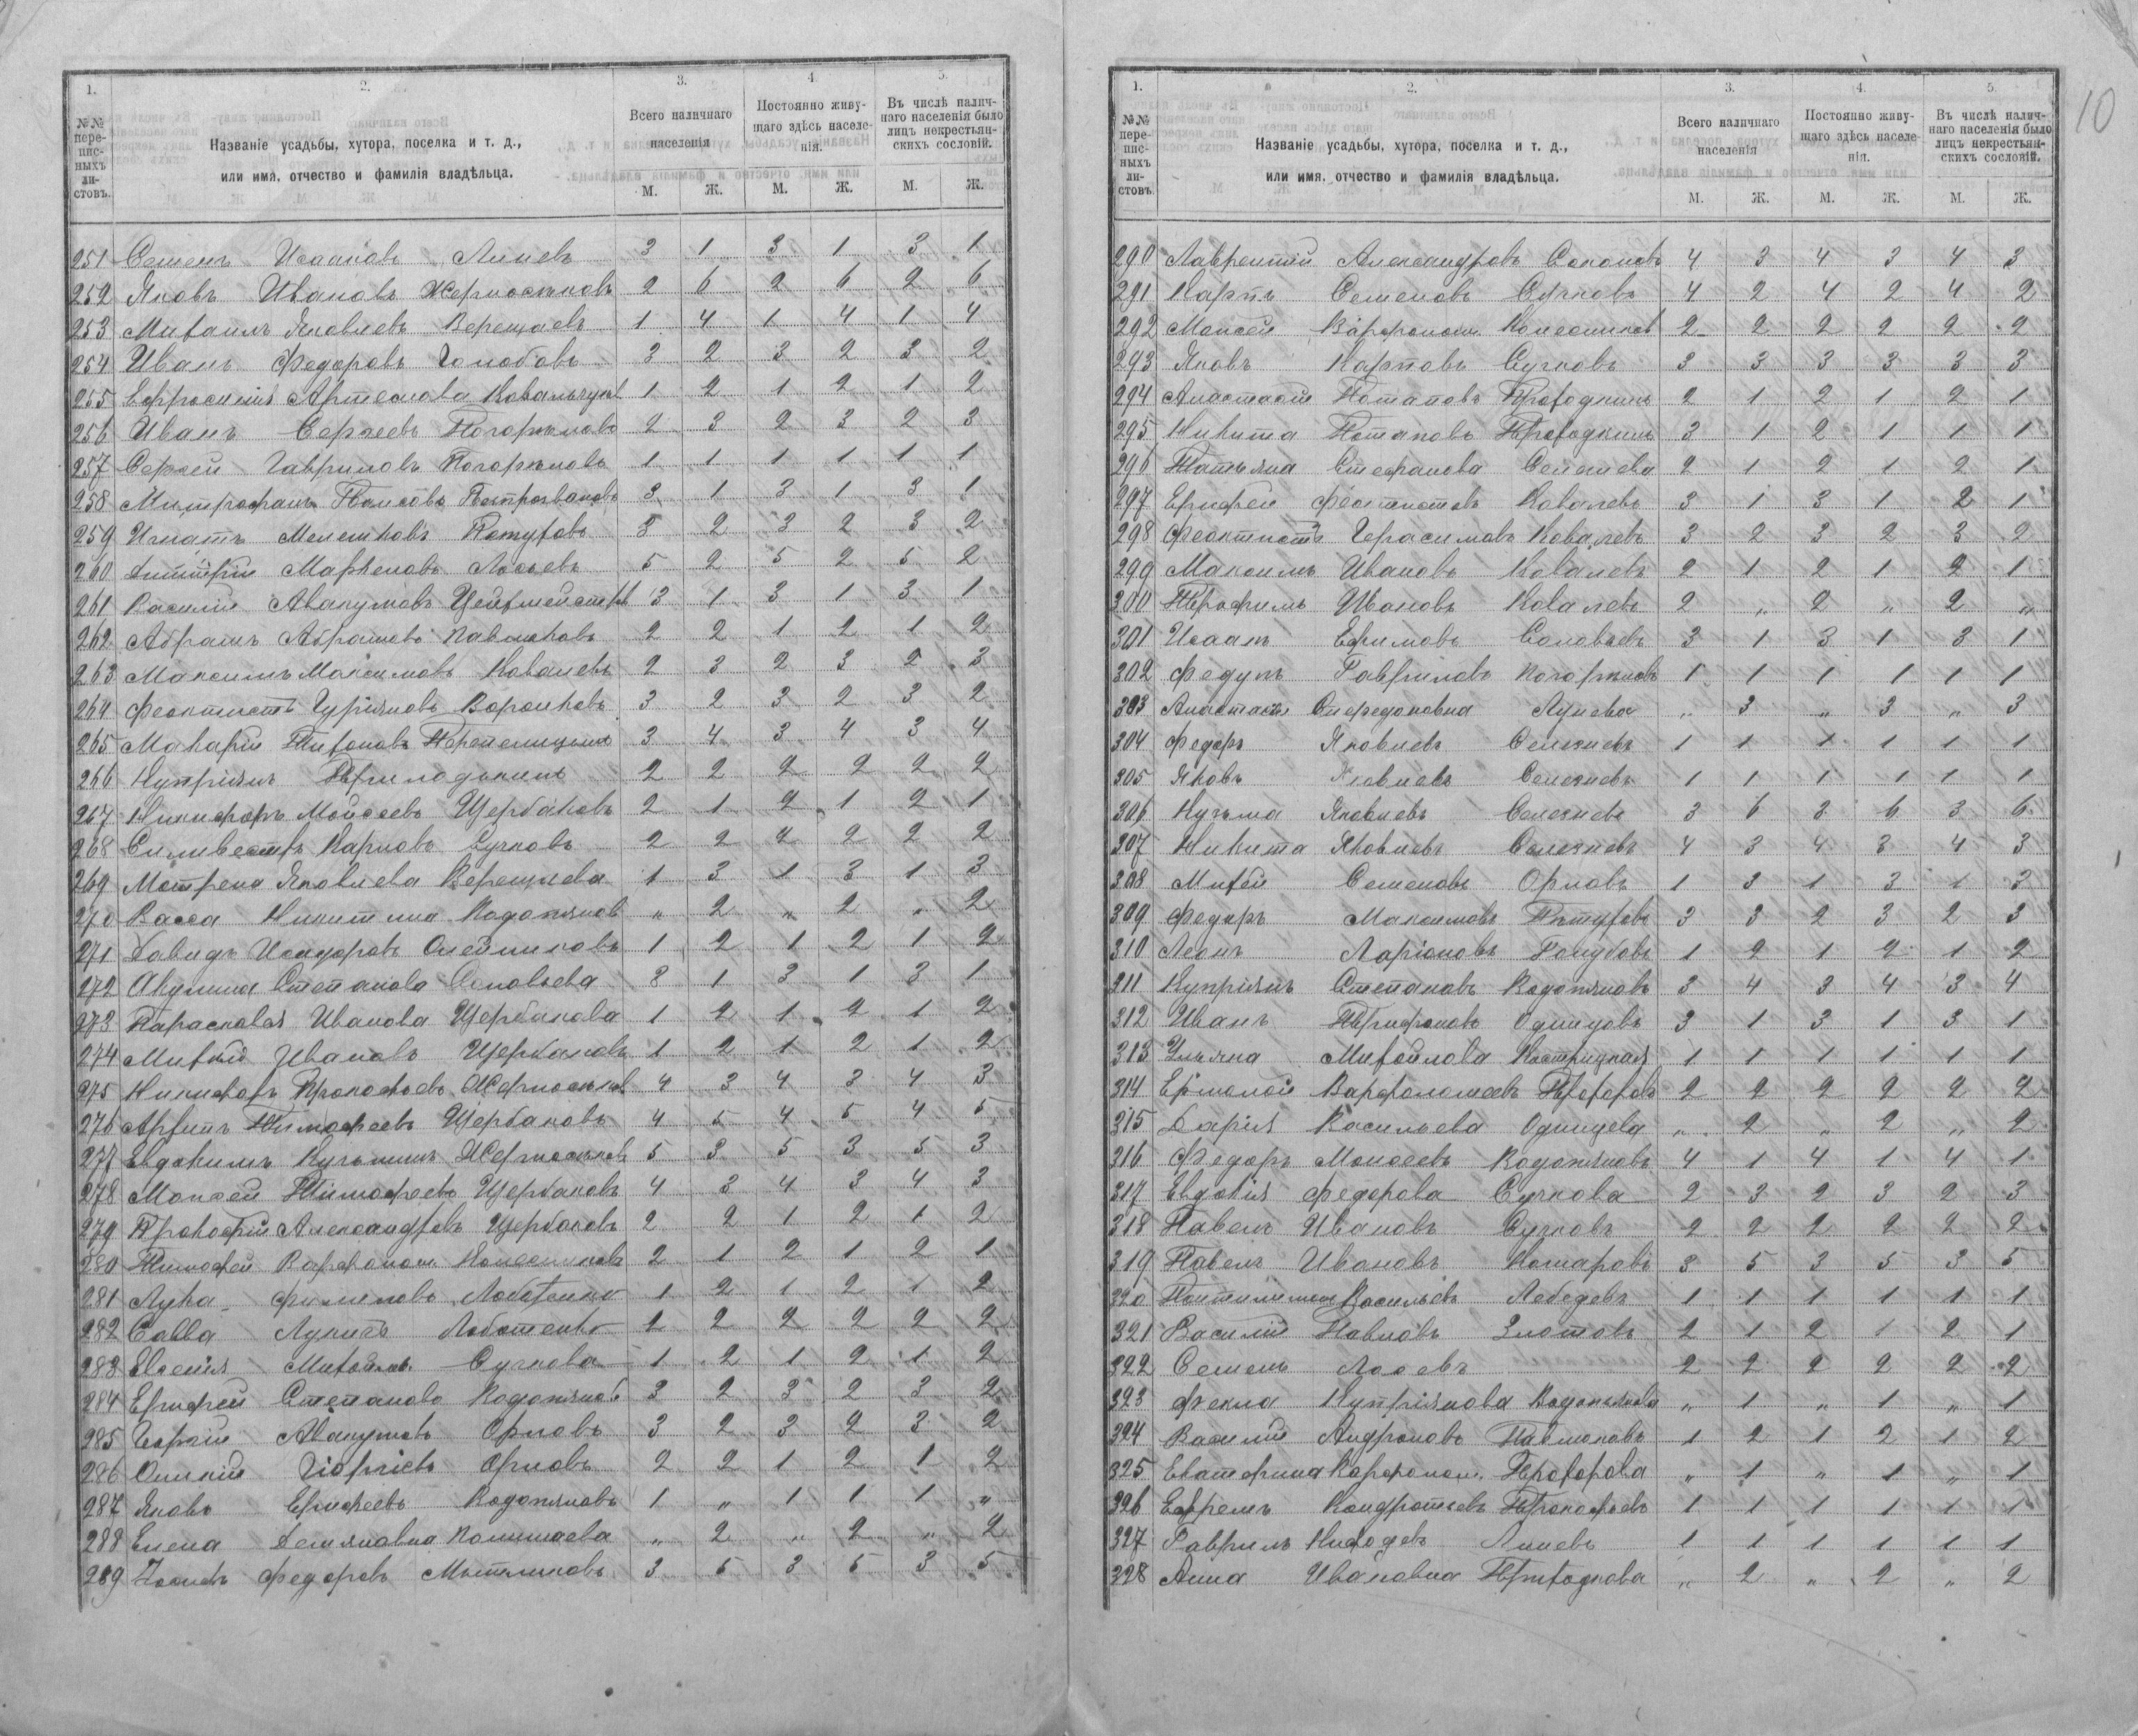 10
1. 2. 3. 4. 5.
№№ пере-пис-ныхъ ли-стовъ.
Названіе усадьбы, хутора, поселка и т. д.,
или имя, отчество и фамилія владѣльца.
Всего наличнаго населенія
Постоянно живу-щаго здѣсь населе-нія.
Въ числѣ налич-наго населенія было лицъ некрестьян-скихъ сословій.
М. Ж. М. Ж. М. Ж.
251 Семенъ Исааковъ Линевъ 3 1 3 1 3 1
252 Яковъ Ивановъ Жерносѣковъ 2 6 2 6 2 6
253 Михаилъ Яковлевъ Верещаевъ 1 4 1 4 1 4
254 Иванъ Федоровъ Голобовъ 3 2 3 2 3 2
255 Ефросинія Артемова 1 2 1 2 1 2
256 Иванъ Сергеевъ Погорѣловъ 2 3 2 3 2 3
257 Сергей Гавриловъ Погорѣловъ 1 1 1 1 1 1
258 Митрофанъ 3 1 3 1 3 1
259 Игнатъ Мелентьевъ 3 2 3 2 3 2
260 Дмитрій Маркеловъ Лосьевъ 5 2 5 2 5 2
261 Василій Авакумовъ Цейхмейстеръ 3 1 3 1 3 1
262 Абрамъ Абрамовъ Павлюковъ 2 2 1 2 1 2
263 Максимъ Максимовъ Ковалевъ 2 3 2 3 2 3
264 Феоктистъ Гуріяновъ Воронковъ 3 2 3 2 3 2
265 Макарій Тихоновъ Перепелицынъ 3 4 3 4 3 4
266 Купріянъ 2 2 2 2 2 2
267 Никифоръ Мойсеевъ Щербаковъ 2 1 2 1 2 1
268 Силивестръ Карповъ Сучковъ 2 2 2 2 2 2
269 Мотрена Яковлева Верещаева 1 3 1 3 1 3
270 Васса Никитина Водопянов „ 2 „ 2 „ 2
271 Давидъ Исидоровъ Олейниковъ 1 2 1 2 1 2
272 Акулина Степанова Соловьева 3 1 3 1 3 1
273 Парасковья Иванова Щербакова 1 2 1 2 1 2
274 Михей Ивановъ Щербаковъ 1 2 1 2 1 2
275 Никифоръ Прокофьевъ Жерносѣков 4 3 4 3 4 3
276 Архипъ Тимофеевъ Щербаковъ 4 5 4 5 4 5
277 Евдокимъ Кузьминъ Жерносѣков 5 3 5 3 5 3
278 Моисей Тимофеевъ Щербаковъ 4 3 4 3 4 3
279 Прокофій Александровъ Щербаковъ 2 2 1 2 1 2
280 Тимофей Варфолом. Колесниковъ 2 1 2 1 2 1
281 Лука Филиповъ 1 2 1 2 1 2
282 Савва Лукичъ 1 2 2 2 2 2
283 Евгенія Михайлов. Сучкова 1 2 1 2 1 2
284 Ерифей Степановъ Водопянов 3 2 3 2 3 2
285 Георгій Авакумовъ Орловъ 3 2 3 2 3 2
286 Гіоргіевъ Орловъ 2 2 1 2 1 2
287 Яковъ Ерифеевъ Водопяновъ 1 „ 1 1 1 „
288 Елена Демяновна „ 2 „ 2 „ 2
289 Федоровъ Мѣтликовъ 3 5 3 5 3 5
1. 2. 3. 4. 5.
№№ пере-пис-ныхъ ли-стовъ.
Названіе усадьбы, хутора, поселка и т. д.,
или имя, отчество и фамилія владѣльца.
Всего наличнаго населенія
Постоянно живу-щаго здѣсь населе-нія.
Въ числѣ налич-наго населенія было лицъ некрестьян-скихъ сословій.
М. Ж. М. Ж. М. Ж.
290 Лаврентій Александровъ Соколовъ 4 3 4 3 4 3
291 Карпъ Семеновъ Сучковъ 4 2 4 2 4 2
292 Моисей Варфолом. Колесников 2 2 2 2 2 2
293 Яковъ Карповъ Сучковъ 3 3 3 3 3 3
294 Анастасій Потаповъ Проходкинъ 2 1 2 1 2 1
295 Никита Потаповъ Проходкинъ 3 1 2 1 1 1
296 Татьяна Стефанова Селезнева 2 1 2 1 2 1
297 Ерифей Феоктистовъ Ковалевъ 3 1 3 1 2 1
298 Феоктистъ Герасимовъ Ковалевъ 3 2 3 2 3 2
299 Максимъ Ивановъ Ковалевъ 2 1 2 1 2 1
300 Трофимъ Ивановъ Ковалевъ 2 „ 2 „ 2 „
301 Исаакъ Ефимовъ Соловьевъ 3 1 3 1 3 1
302 Федулъ Гавриловъ Погорѣловъ 1 1 1 1 1 1
303 Анастасія Спиредоновна Лунева „ 3 „ 3 „ 3
304 Федоръ Яковлевъ Селезневъ 1 1 1 1 1 1
305 Яковъ Яковлевъ Селезневъ 1 1 1 1 1 1
306 Кузьма Яковлевъ Селезневъ 3 6 3 6 3 6
307 Никита Яковлевъ Селезневъ 4 3 4 3 4 3
308 Михей Семеновъ Орловъ 1 3 1 3 1 3
309 Федоръ Максимовъ 3 3 2 3 2 3
310 Леонъ Ларіоновъ Голубовъ 1 2 1 2 1 2
311 Купріянъ Степановъ Водопяновъ 3 4 3 4 3 4
312 Иванъ Трифоновъ Одинцовъ 3 1 3 1 3 1
313 Ульяна Михойлова 1 1 1 1 1 1
314 Ермолай Варфоломеевъ Прохоровъ 2 2 2 2 2 2
315 Дарія Васильева Одинцева „ 2 „ 2 „ 2
316 Федоръ Моисеевъ Водопяновъ 4 1 4 1 4 1
317 Евдокія Федорова Сучкова 2 3 2 3 2 3
318 Павелъ Ивановъ Сучковъ 2 2 2 2 2 2
319 Павелъ Ивановъ Комаровъ 3 5 3 5 3 5
320 Васильевъ Лебедевъ 1 1 1 1 1 1
321 Василій Павловъ Золотовъ 2 1 2 1 2 1
322 Семенъ Лосевъ 2 2 2 2 2 2
323 Фекла Купріянова Водопьянова „ 1 „ 1 „ 1
324 Василій Андроновъ Павлюковъ 1 2 1 2 1 2
325 Екатерина Варфолом. Прохорова „ 1 „ 1 „ 1
326 Ефремъ Кондратьевъ Прокофьевъ 1 1 1 1 1 1
327 Гаврилъ Линевъ 1 1 1 1 1 1
328 Анна Ивановна Приходкова „ 2 „ 2 „ 2